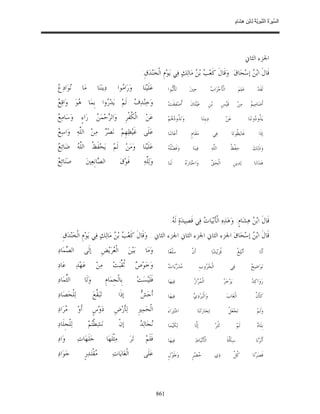 السِّيرَةُ النَّبَوِيَّةُ لِابْنِ هِشَامٍ
الجزء الثاني
قَالَ ابْنُ إسْحَاقَ وَقَالَ كَعْبُ بْنُ مَالِكٍ فِي يَوْمِ الْخَنْدَقِ
لَقَدْ عَلِمَ الْأَحْزَابُ حِينَ تَأَلَّبُوا عَلَيْنَا وَرَامُوا دِينَنَا مَا نُوَادِعُ
أَضَامِيمُ مِنْ قَيْسِ بْنِ عَيْلَانَ أَصْفَقَتْ وَخِنْدِفُ لَمْ يَدْرُوا بِمَا هُوَ وَاقِعُ
يَذُودُونَنَا عَنْ دِينِنَا وَنَذُودُهُمْ عَنْ الْكُفْرِ وَالرَّحْمَنُ رَاءٍ وَسَامِعُ
إذَا غَايَظُونَا فِي مَقَامٍ أَعَانَنَا عَلَى غَيْظِهِمْ نَصْرٌ مِنْ اللَّهِ وَاسِعُ
وَذَلِكَ حِفْظُ اللَّهِ فِينَا وَفَضْلُهُ عَلَيْنَا وَمَنْ لَمْ يَحْفَظْ اللَّهُ ضَائِعُ
هَدَانَا لِدِينِ الْحَقِّ وَاخْتَارَهُ لَنَا وَلِلَّهِ فَوْقَ الصَّانِعِينَ صَنَائِعُ
قَالَ ابْنُ هِشَامٍ وَهَذِهِ الْأَبْيَاتُ فِي قَصِيدَةٍ لَهُ
قَالَ ابْنُ إسْحَاقَ الجزء الثاني الجزء الثاني الجزء الثاني وَقَالَ كَعْبُ بْنُ مَالِكٍ فِي يَوْمِ الْخَنْدَقِ
أَلَا أَبْلِغْ قُرَيْشًا أَنَّ سَلْعًا وَمَا بَيْنَ الْعُرَيْضِ إلَى الصَّمَادِ
نَوَاضِحُ فِي الْحُرُوبِ مُدَرَّبَاتٌ وَخَوْصٌ ثُقِّبَتْ مِنْ عَهْدِ عَادِ
رَوَاكِدُ يَزْخَرُ الْمُرَّارُ فِيهَا فَلَيْسَتْ بِالْجِمَامِ وَلَا الثِّمَادِ
كَأَنَّ الْغَابَ وَالْبَرْدِيَّ فِيهَا أَجَشُّ إذَا تَبَقَّعَ لِلْحَصَادِ
وَلَمْ نَجْعَلْ تِجَارَتَنَا اشْتِرَاءَ الْحَمِيرِ لِأَرْضِ دَوْسٍ أَوْ مُرَادِ
بِلَادٌ لَمْ تُثَرْ إلَّا لِكَيْمَا نُجَالِدُ إنْ نَشِطْتُمْ لِلْجِلَادِ
أَثَرْنَا سِكَّةَ الْأَنْبَاطِ فِيهَا فَلَمْ تَرَ مِثْلَهَا جَلَهَاتِ وَادِ
قَصَرْنَا كُلَّ ذِي حُضْرٍ وَطَوْلٍ عَلَى الْغَايَاتِ مُقْتَدِرٍ جَوَادِ
861